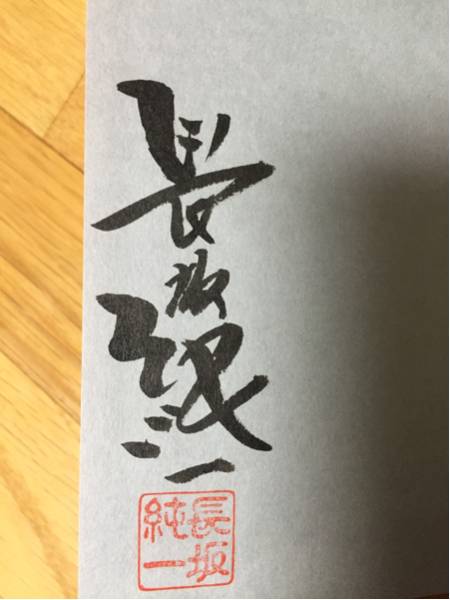 長坂純一
長坂
純一